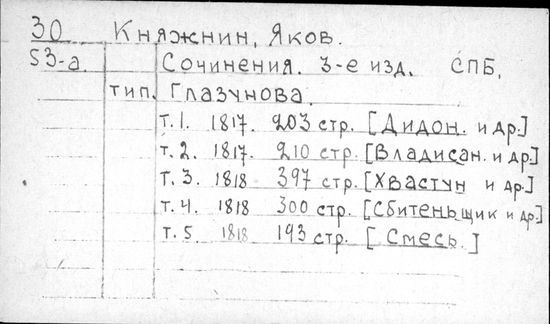 30 Княжнин, Яков.
53-а Сочинения. 3-е изд. СПБ,
тип. Глазунова.
т. 1. 1817. 203 стр. [Дидон. и др.]
т. 2. 1817. 210 стр. [Владисан. и др.]
т. 3. 1818 397 стр. [Хвастун и др.]
т. 4. 1818 300 стр. [Сбитеньщик и др.]
т. 5 1818 193 стр. [Смесь.]